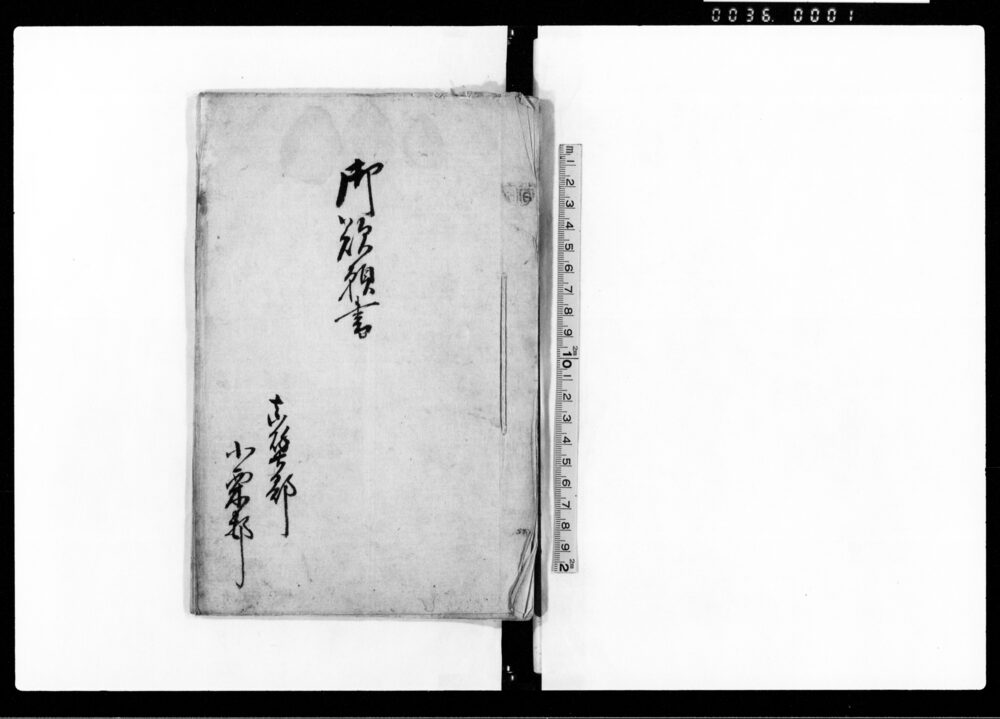 0036. 0001
御歎願書
真壁郡
小栗村
m 1 2 3 4 5 6 7 8 9 10 1 2 3 4 5 6 7 8 9 2